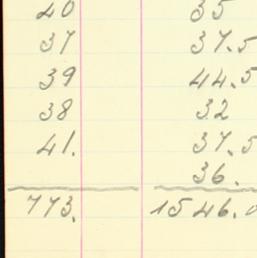 40 35
37 37.5
39 44.5
38 32
41. 37.5
36.
773. 1546.0